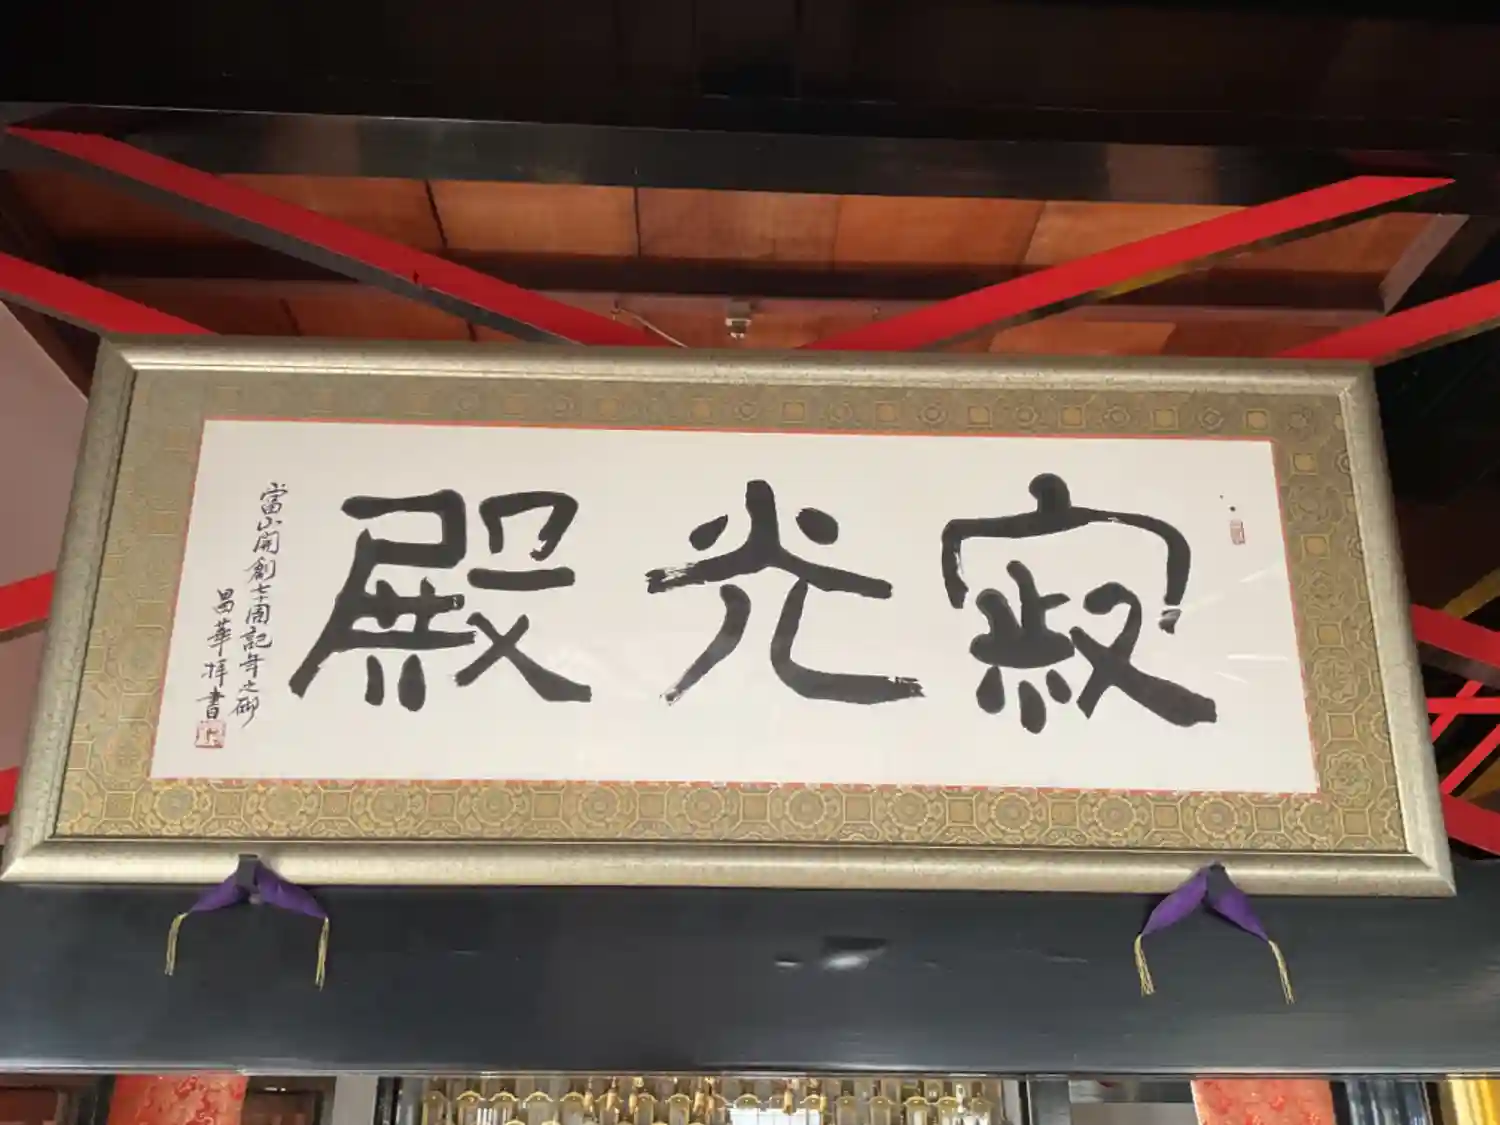 寂光殿
當山開創七十周記年之砌
昌華拝書